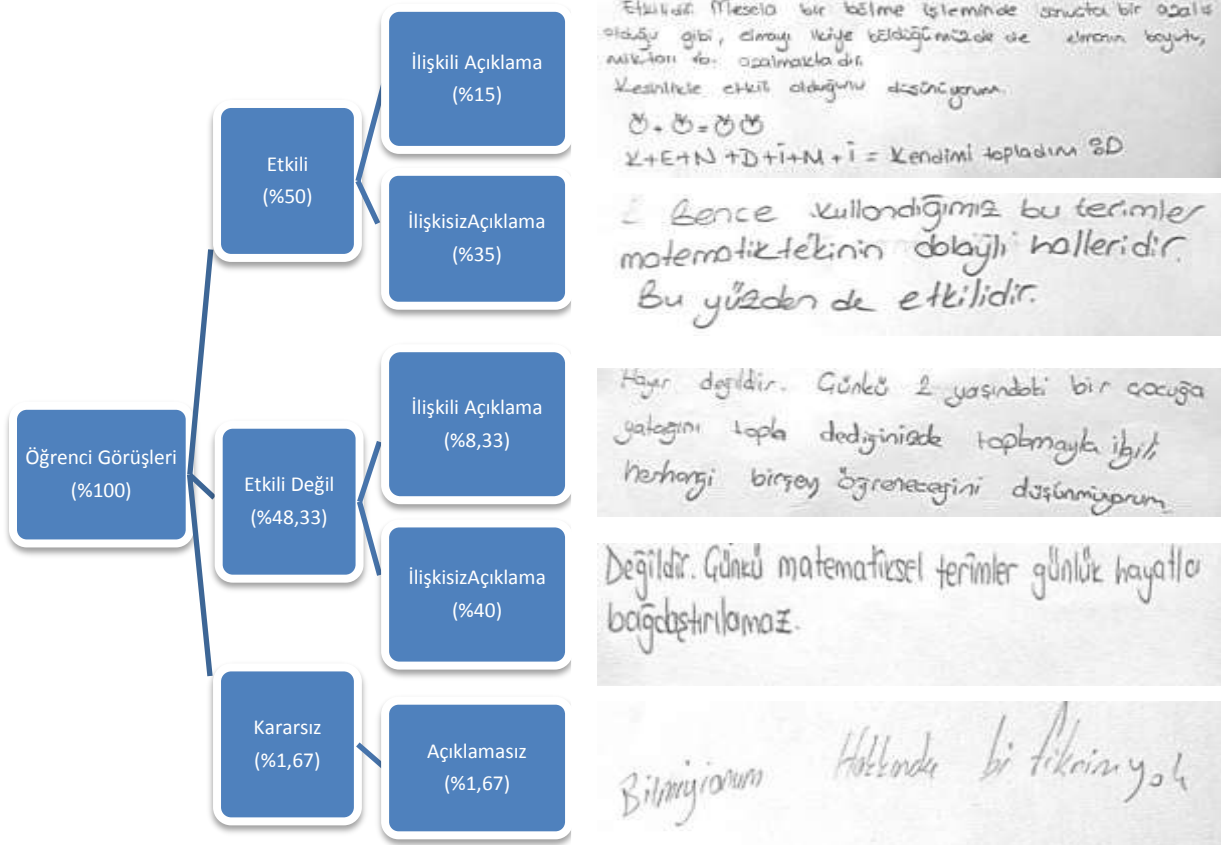 Öğrenci Görüşleri
(%100)
Etkili
(%50)
İlişkili Açıklama
(%15)
İlişkisizAçıklama
(%35)
Etkili Değil
(%48,33)
İlişkili Açıklama
(%8,33)
İlişkisizAçıklama
(%40)
Kararsız
(%1,67)
Açıklamasız
(%1,67)
Etkilidir. Mesela bir bölme işleminde sonuçta bir azalış
olduğu gibi, elmayı ikiye böldüğümüzde de elmanın boyutu,
miktarı vb. azalmaktadır.
Kesinlikle etkili olduğunu düşünüyorum.
K+E+N+D+İ+M+İ = Kendimi topladım :D
Bence kullandığımız bu terimler
matematiktekinin dolaylı halleridir.
Bu yüzden de etkilidir.
Hayır değildir. Günkü 2 yaşındaki bir çocuğa
yatağını topla dediğinizde toplamayla ilgili
herhangi birşey öğreneceğini düşünmüyorum
Değildir. Günkü matematiksel terimler günlük hayatla
bağdaştırılamaz.
Bilmiyorum Hakkında bi fikrim yok